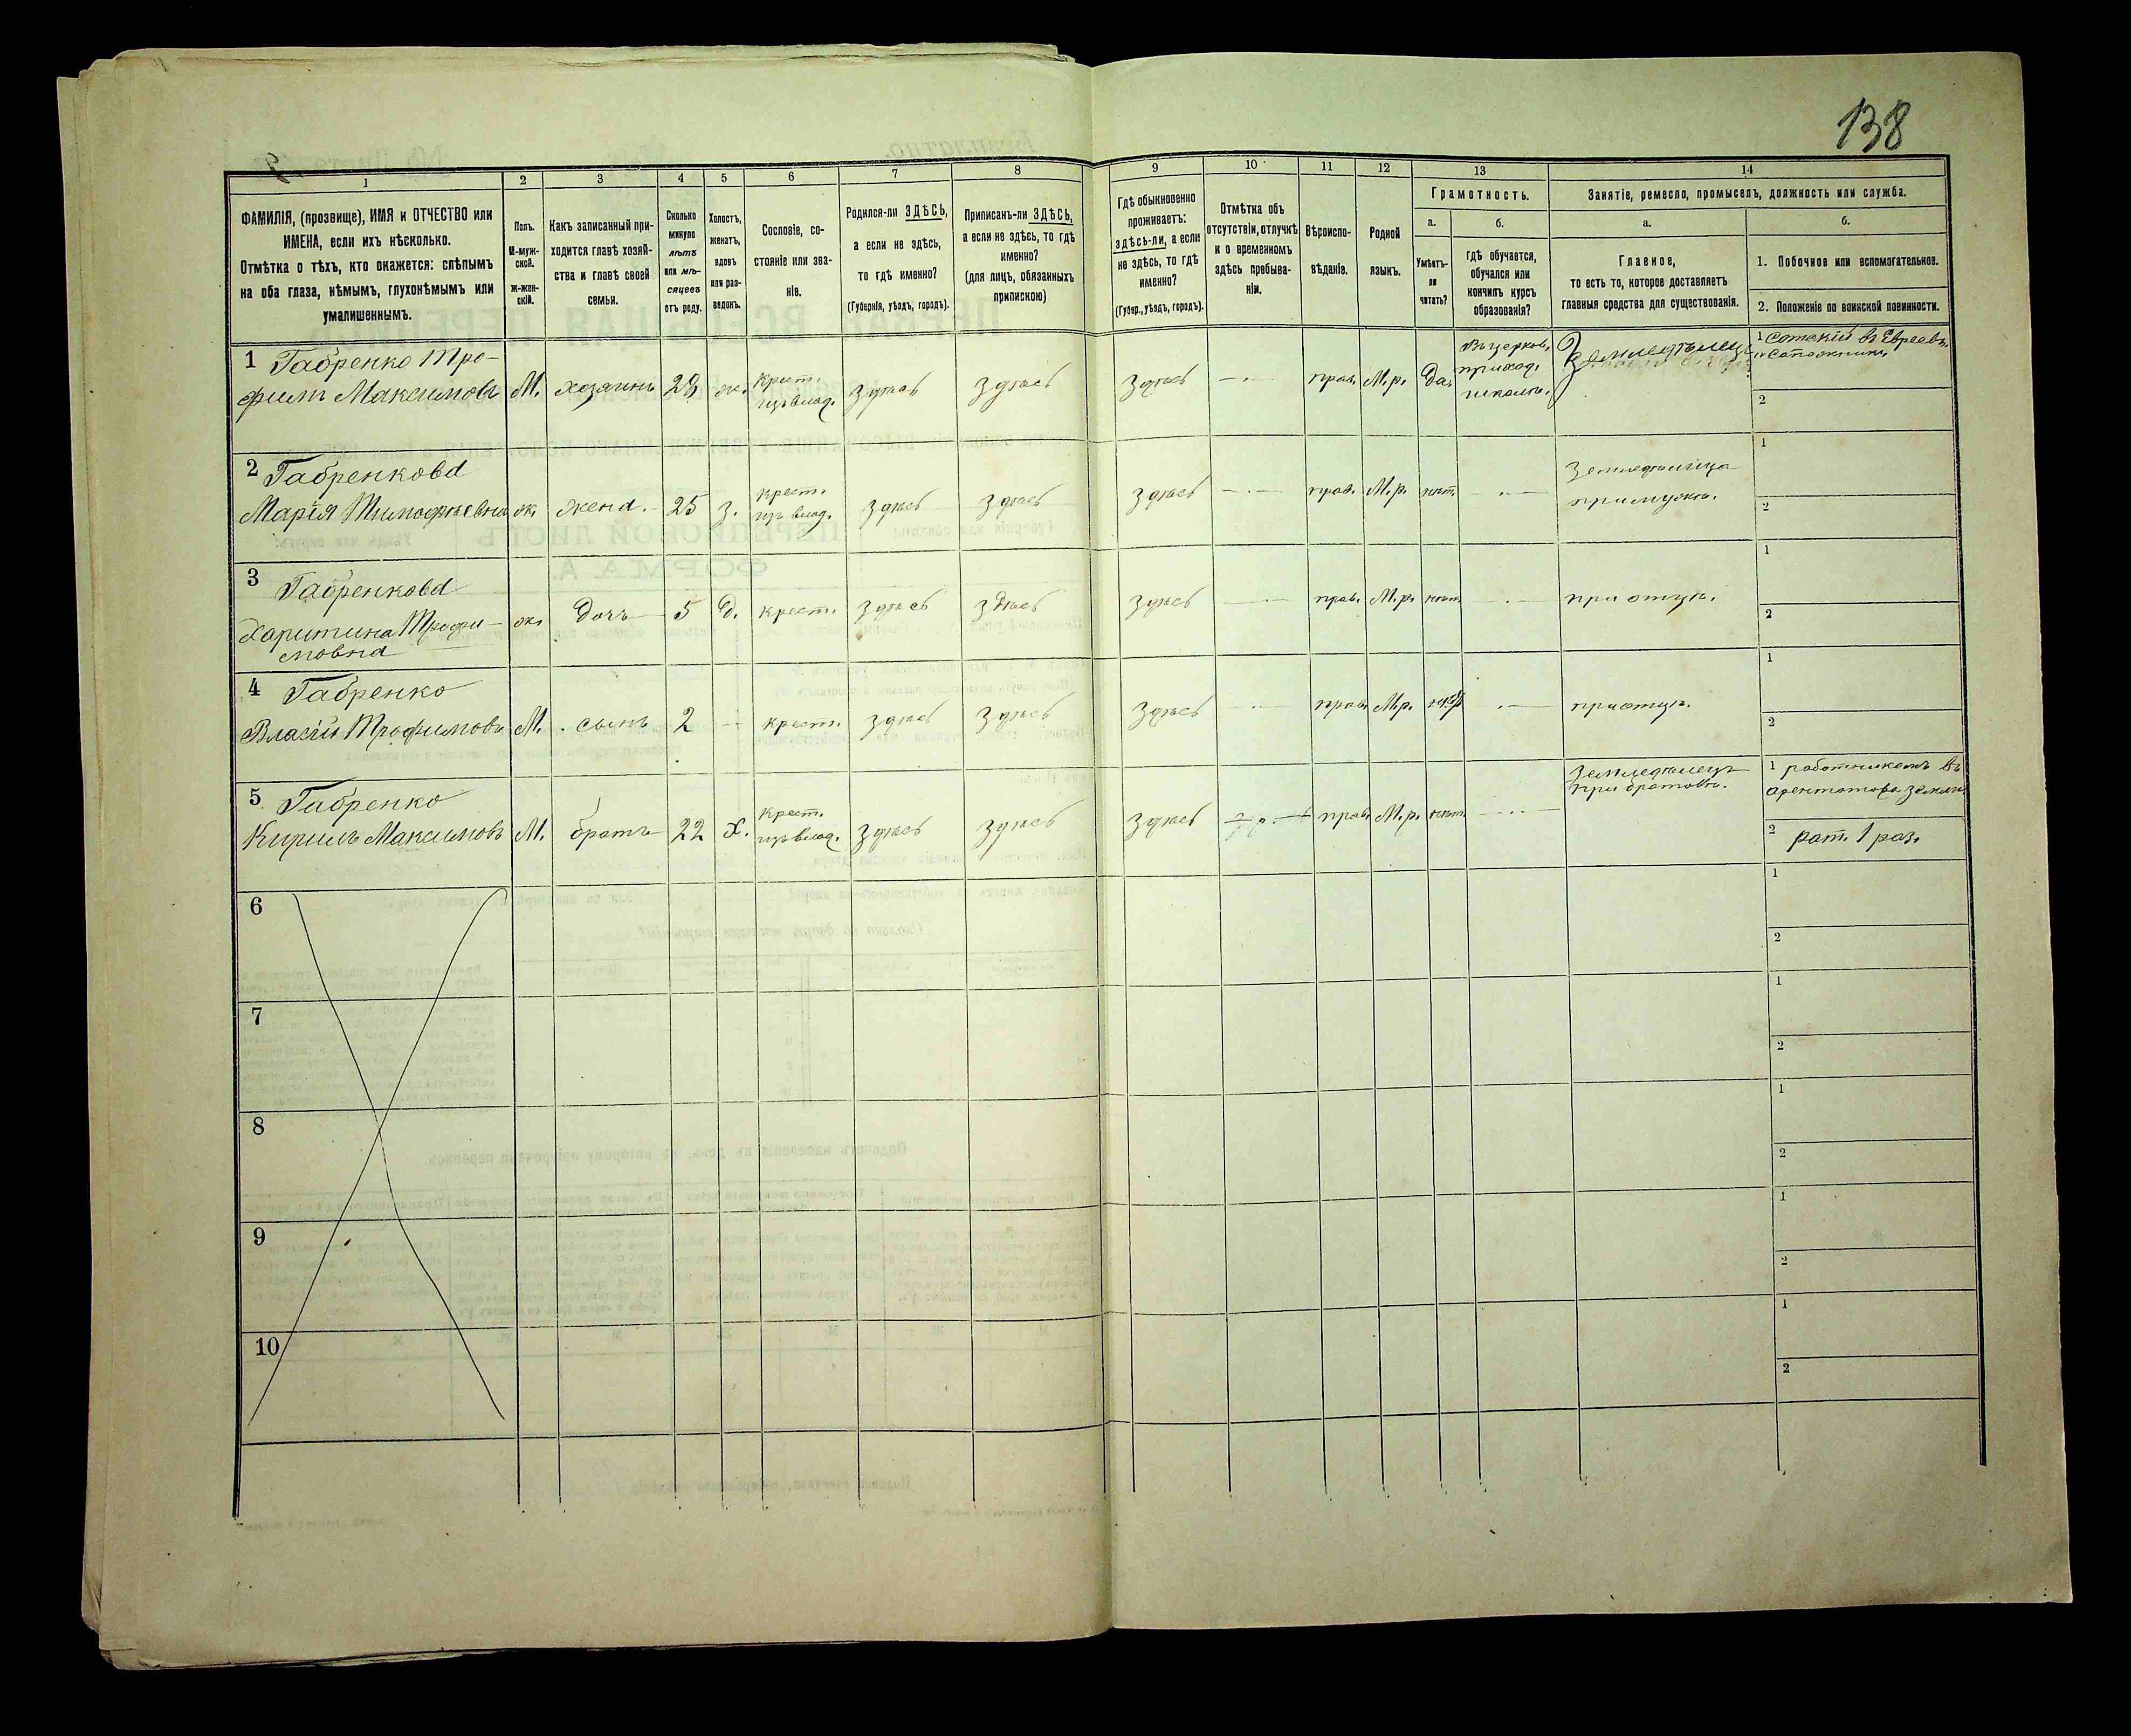 138
1
2
3
4
5
6
7
8
9
10
11
12
13
14
ФАМИЛІЯ, (прозвище), ИМЯ и ОТЧЕСТВО или
ИМЕНА, если ихъ нѣсколько.
Отмѣтка о тѣхъ, кто окажется: слѣпымъ
на оба глаза, нѣмымъ, глухонѣмымъ или
умалишеннымъ.
Полъ.
М-муж-
ской.
Ж-жен-
скій.
Какъ записанный при-
ходится главѣ хозяй-
ства и главѣ своей
семьи.
Сколько
минуло
лѣтъ
или мѣ-
сяцевъ
отъ роду.
Холостъ,
женатъ,
вдовъ
или раз-
веденъ.
Сословіе, со-
стояніе или зва-
ніе.
Родился-ли ЗДѢСЬ,
а если не здѣсь,
то гдѣ именно?
(Губернія, уѣздъ, городъ).
Приписанъ-ли ЗДѢСЬ,
а если не здѣсь, то гдѣ
именно?
(для лицъ, обязанныхъ
припискою)
Гдѣ обыкновенно
проживаетъ:
здѣсь-ли, а если
не здѣсь, то гдѣ
именно?
(Губер., уѣздъ, городъ).
Отмѣтка объ
отсутствіи, отлучкѣ
и о временномъ
здѣсь пребыва-
ніи.
Вѣроиспо-
вѣданіе.
Родной
языкъ.
Грамотность.
а.
Умѣетъ-
ли
читать?
б.
гдѣ обучается,
обучался или
кончилъ курсъ
образованія?
Занятіе, ремесло, промыселъ, должность или служба.
а.
Главное,
то есть то, которое доставляетъ
главныя средства для существованія.
б.
1. Побочное или вспомогательное.
2. Положеніе по воинской повинности.
1 Габренко Тро-
фим Максимовъ
М.
хозяинъ
28
ж.
Крест.
изъ влад.
здѣсь
здѣсь
здѣсь
прав.
М.р.
да
Въ церков.
приход.
школѣ.
Земледѣлецъ
1 Сотскій
2
2 Габренкова
Марія Тимофѣевна
ж.
жена
25
з.
крест.
изъ влад.
здѣсь
здѣсь
здѣсь
прав.
М.р.
нѣт.
земледѣлица
при мужѣ.
1
2
3 Габренкова
Харитина Трофи-
мовна
ж.
дочь
5
д.
крест.
здѣсь
здѣсь
здѣсь
прав.
М.р.
нѣт.
при отцѣ.
1
2
4 Габренко
Власій Трофимовъ
М.
сынъ
2
крест.
здѣсь
здѣсь
здѣсь
прав.
М.р.
при отцѣ.
1
2
5 Габренко
Кирилъ Максимовъ
М.
братъ
22
х.
Крест.
изъ влад.
здѣсь
здѣсь
здѣсь
прав.
М.р.
нѣт.
земледѣлецъ
при братовѣ.
1 работникомъ въ
арентатора земли
2 рат. 1 раз.
6
1
2
7
1
2
8
1
2
9
1
2
10
1
2